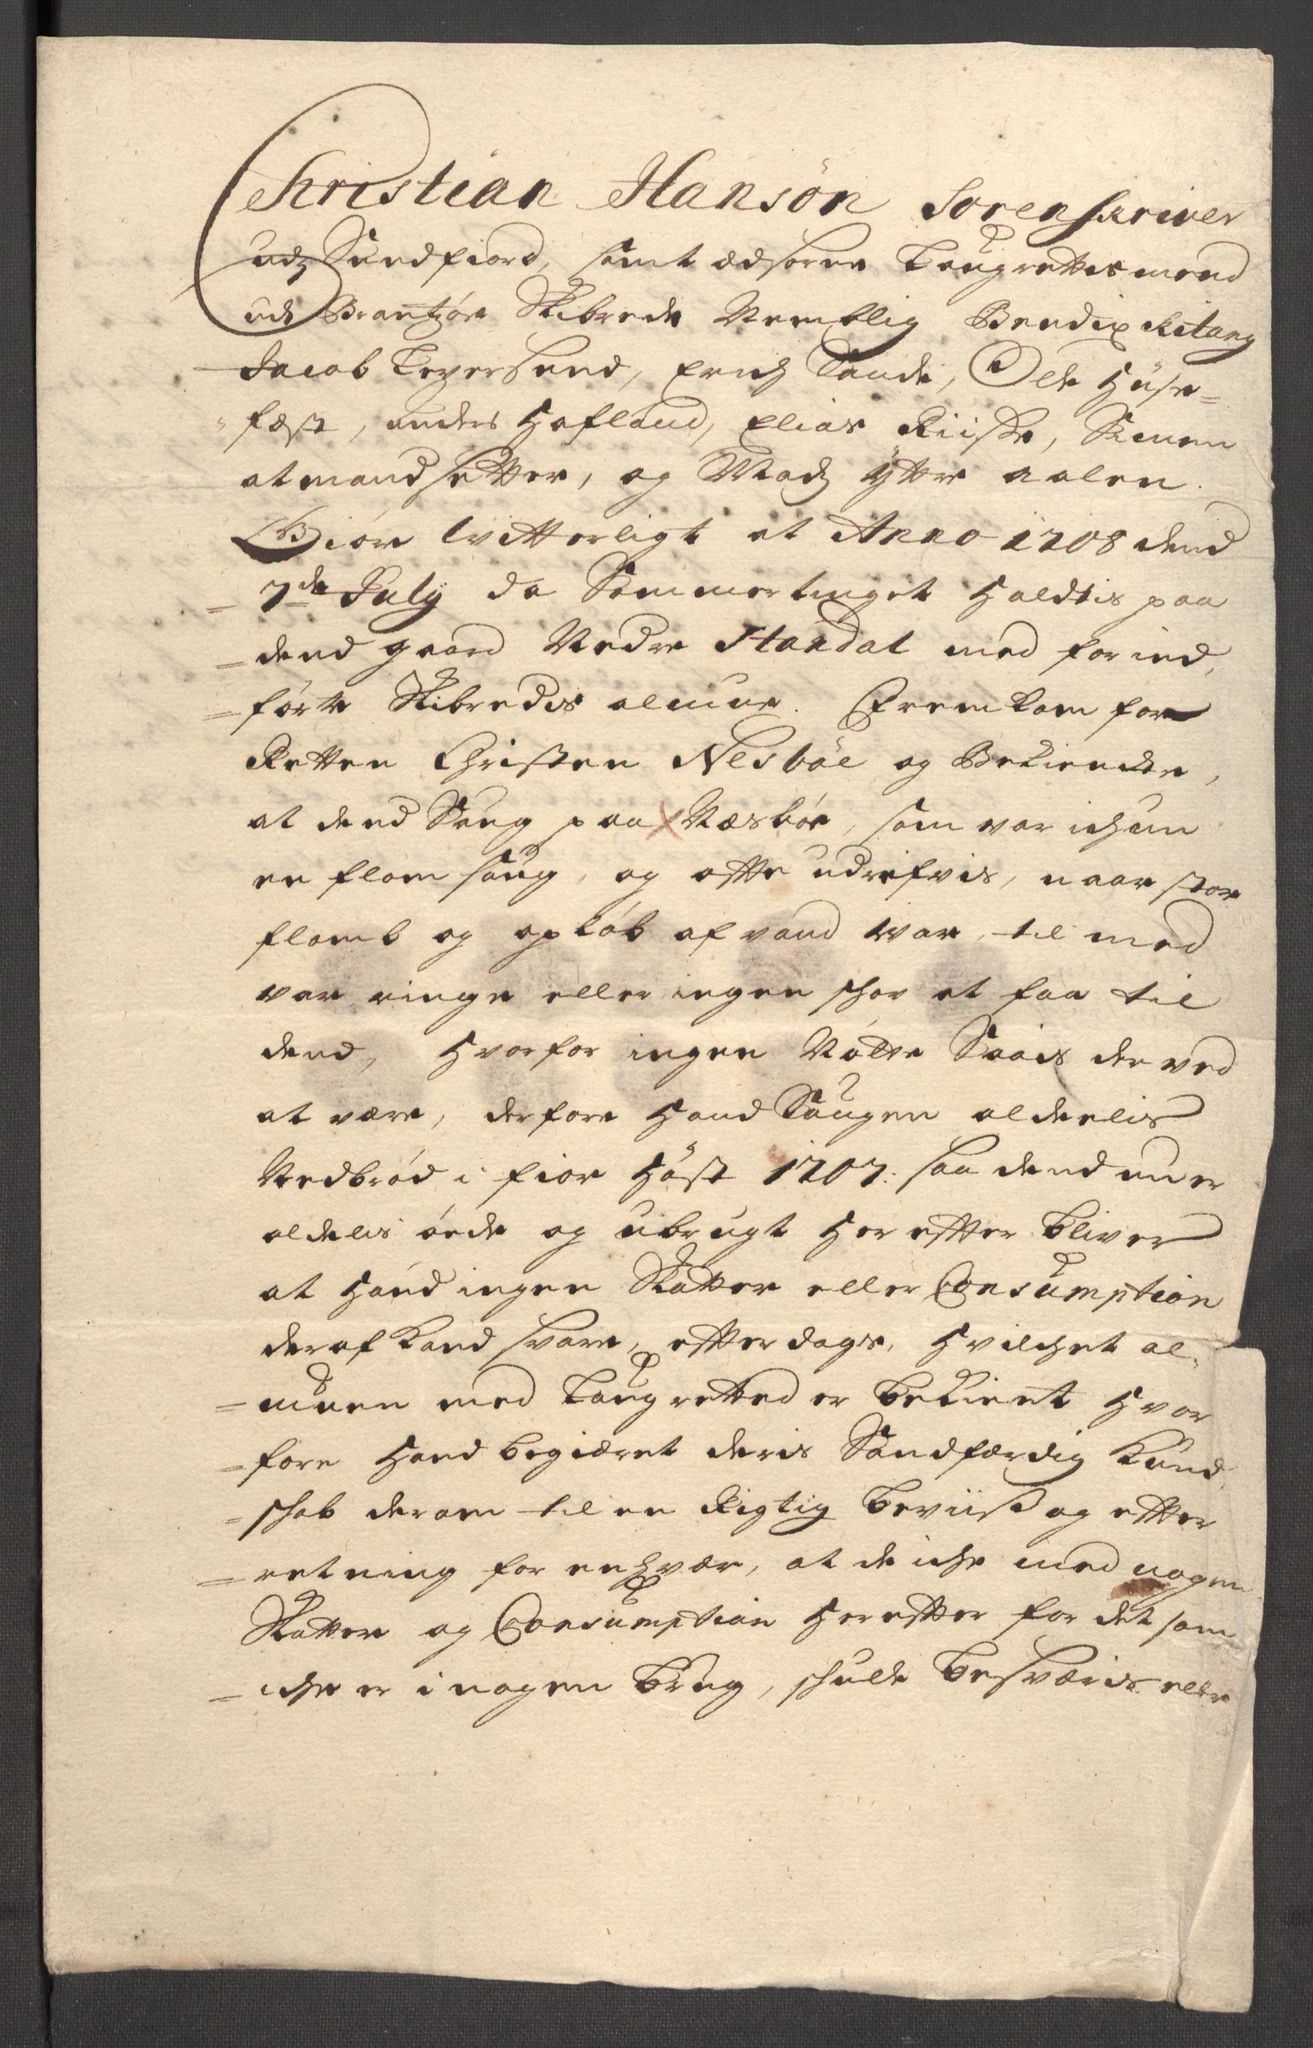 Christian Hansøn Sorenskriver
udj Sundfiord, samt Edsoren Laugrettismend
udj Brantzøe Skibrede Nemblig Bendix Kitang
Jacob Leversund, Erich Sande, Olle Huse=
fæst, anders Hofland, Elias Riise, Simen
atmandsetter, og Madz Yttre aalen.
Giøre Witterligt at Anno 1708 dend
7de July da Sommertinget holdtis paa
dend gaard Nedre Standal med for ind,
=førte Skibredis almue. Fremkom for
Retten Christen Nesbøe og Bekiende,
at dend Saug paa Næsbøe, som var ichun
en flom saug, og ofte udrefvis, naar stor
flomb og opløb af vand war, til med
var ringe eller ingen schov at faa til
dend, hvorfor ingen Nøtte Saais der ved
at være, derfore hand Saugen aldeelis
Nedbrød i fior høst 1707. saa dend nu er
aldelis øede og ubrugt her efter bliver
at hand ingen Skatter eller Consumption
deraf kand svare, efter dags, hvilchet al,
=muen med Laugretted er bekient hvor
=fore hand begiæret deris Sandfærdig kund,
=schab derom til en Rigtig beviis og efter
=retning for enhvær, at de iche med nogen
Skatter og Consumption her efter for det som
=iche er i nogen brug, schulle besværis eller